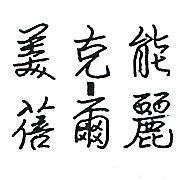 美克能-
蓓爾麗